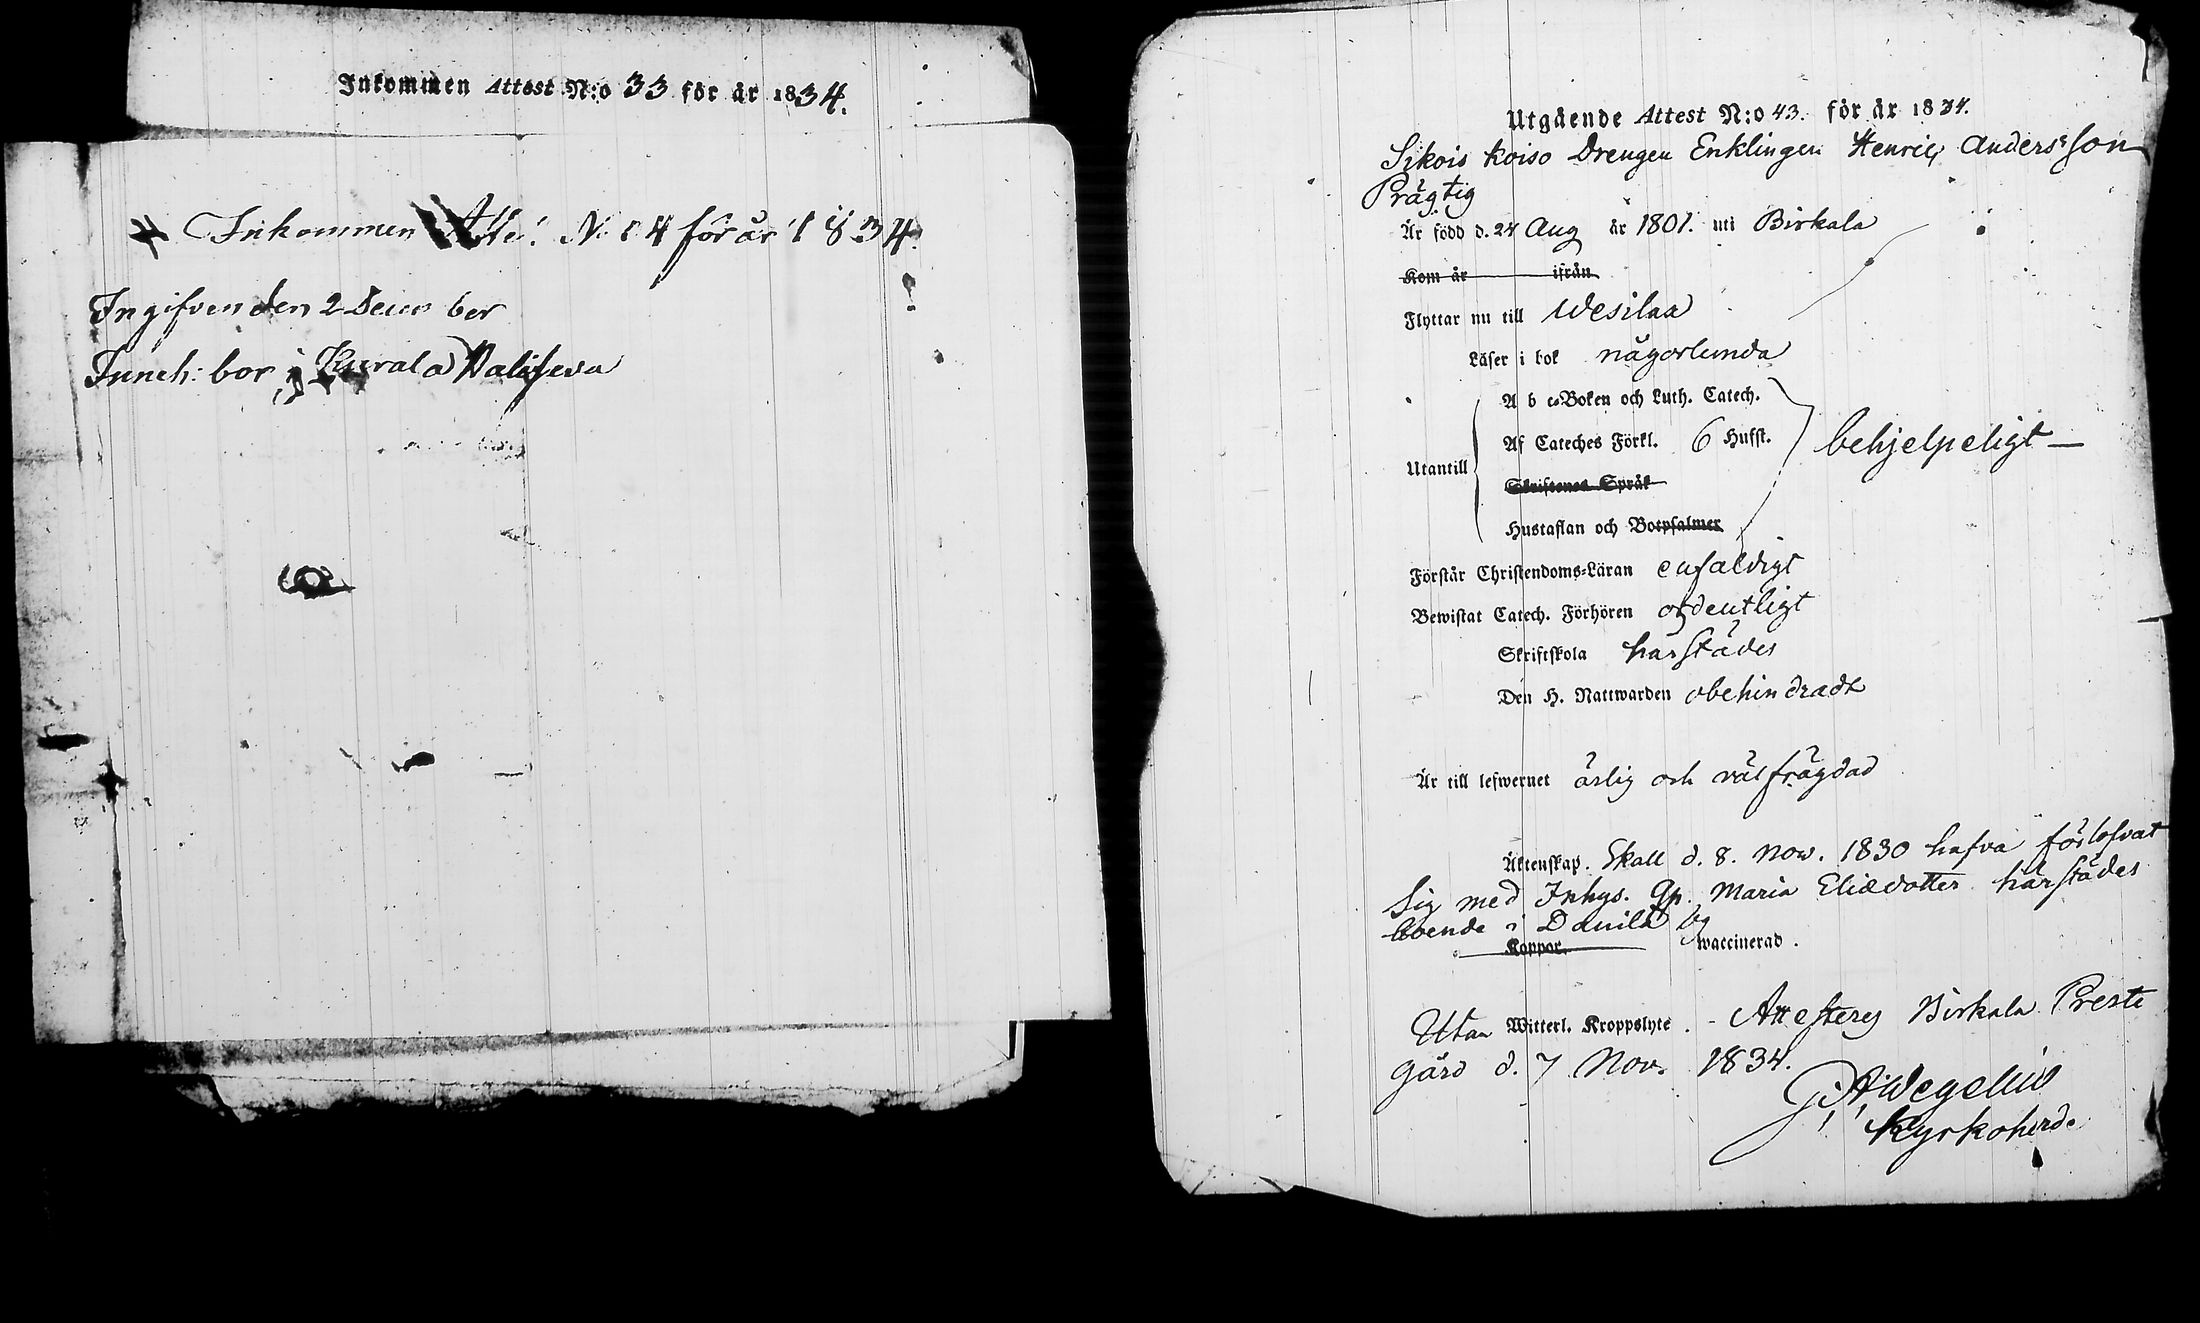 Inkommen Attest N:o 33 för år 1834.
Inkommen Atte: N: 14 för år 1834.
Ingifven den 2 December
Inneh: bor i Kurala
Utgående Attest N:o 43. för år 1834.
Sikois Koiso Drengen Enklingen Henric Anders:Son
Prägtig
Är född d. 24 Aug år 1801. uti Birkala
Kom år ifrån
Flyttar nu till Wesilax
Läser i bok någorlunda
A b c-Boken och Luth. Catech.
Af Cateches Förkl. 6 Hufst.
behjelpeligt
Utantill
Skriftenes Språk
Hustaflan och Botpsalmer
Förstår Christendoms-Läran enfaldigt
Bewistat Catech. Förhören ordentligt
Skriftskola härstädes
Den H. Nattwarden obehindradt
Är till lefwernet ärlig och välfrägdad
Äktenskap. Skall d. 8. Nov. 1830 hafva förlofvat
Sig med Inhys. Qp. Maria Eliædotter härstädes
boende i Danila by
Koppor. waccinerad.
Utan Witterl. Kroppslyte. - Attesterr Birkala Preste
gård d. 7 Nov. 1834.
G: A: Wegelius
Kyrkoherde